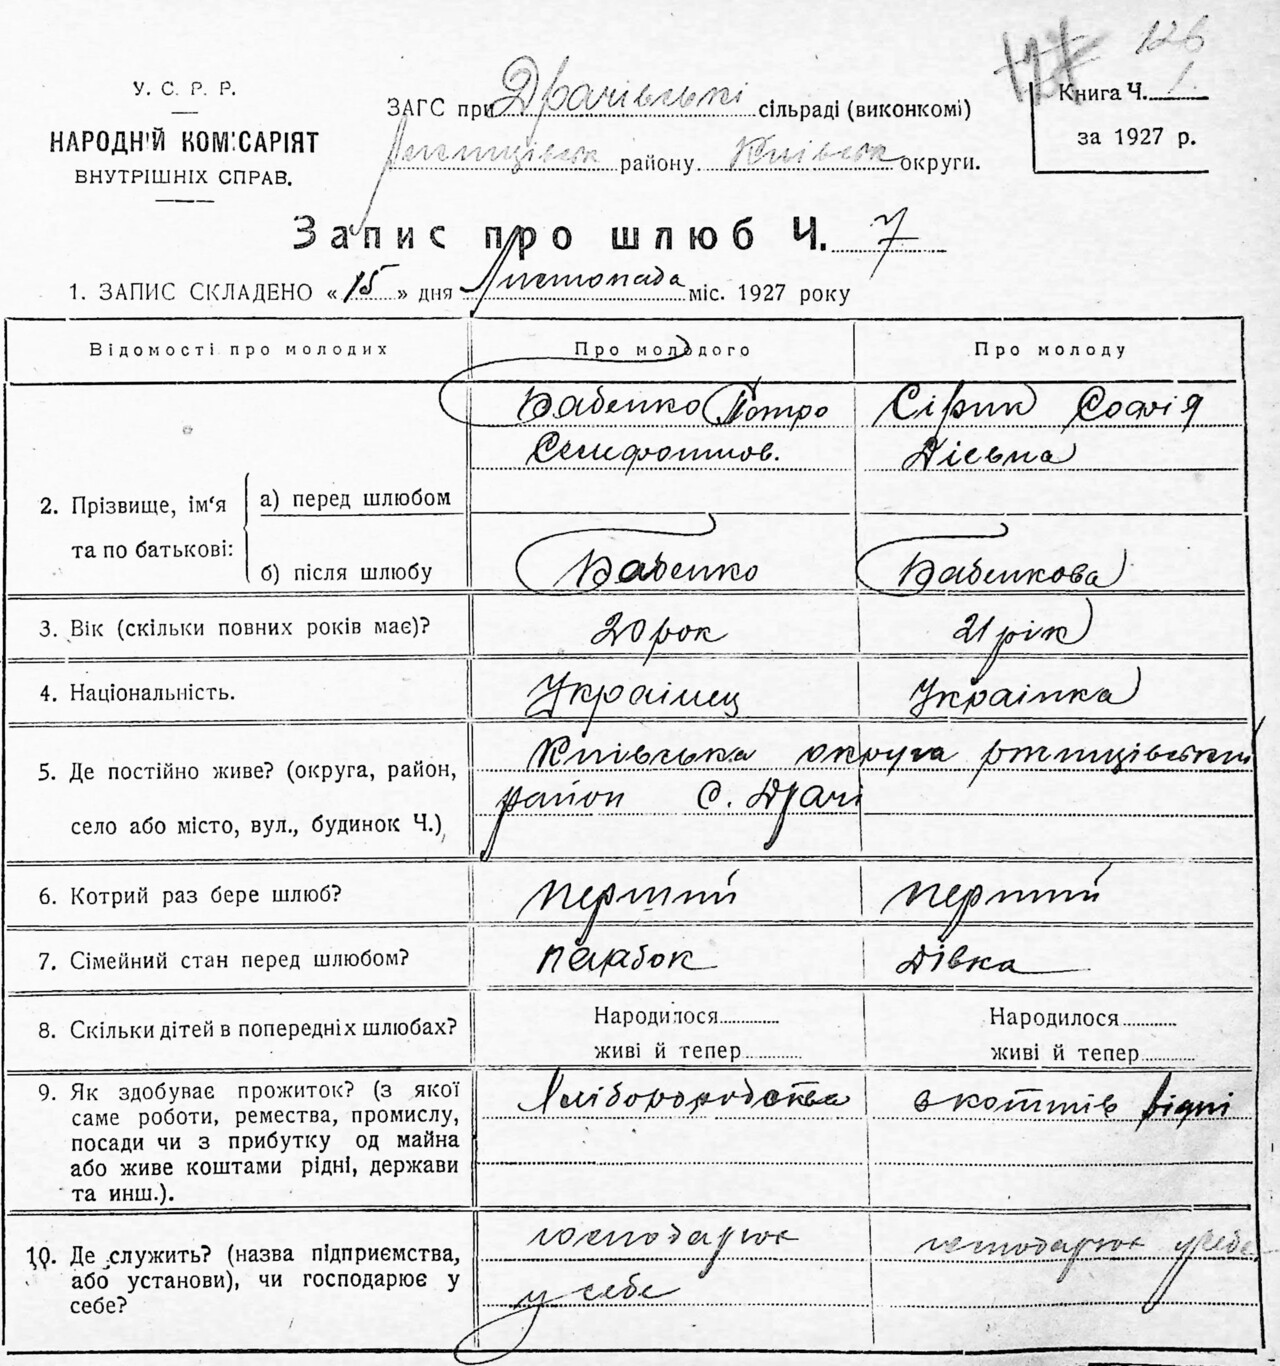 126
У. С. Р. Р.
НАРОДНІЙ КОМІСАРІЯТ
ВНУТРІШНІХ СПРАВ.
ЗАГС при Драчівські сільраді (виконкомі)
району Київськ округи.
Книга Ч. 1.
за 1927 р.
Запис про шлюб Ч. 7
1. ЗАПИС СКЛАДЕНО « 15 » дня Листопада міс. 1927 року
Відомості про молодих
Про молодого
Про молоду
2. Прізвище, ім'я та по батькові:
а) перед шлюбом
Бабенко Петро
Сірик Софія
б) після шлюбу
Бабенко
Бабенкова
3. Вік (скільки повних років має)?
20 рок
21 рік
4. Національність.
Українец
Українка
5. Де постійно живе? (округа, район,
село або місто, вул., будинок Ч.)
Київська округа ржищівський
район с. Драчі
6. Котрий раз бере шлюб?
перший
перший
7. Сімейний стан перед шлюбом?
парабок
дівка
8. Скільки дітей в попередніх шлюбах?
Народилося
живі й тепер
Народилося
живі й тепер
9. Як здобуває прожиток? (з якої
саме роботи, ремества, промислу,
посади чи з прибутку од майна
або живе коштами рідні, держави
та инш.).
з коштів рідні
10. Де служить? (назва підприємства,
або установи), чи господарює у
себе?
господарює
у себе
господарює у себе